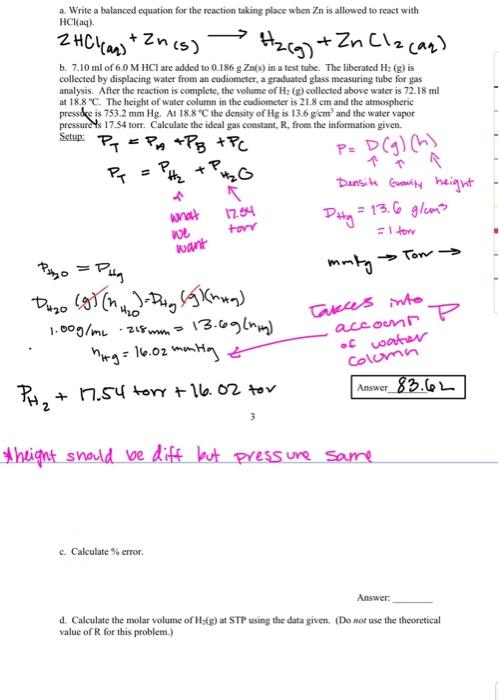 a. Write a balanced equation for the reaction taking place when Zn is allowed to react with
HCl(aq).
2HCl(aq) + Zn(s) ⟶ H2(g) + ZnCl2(aq)
b. 7.10 ml of 6.0 M HCl are added to 0.186 g Zn(s) in a test tube. The liberated H₂ (g) is
collected by displacing water from an eudiometer, a graduated glass measuring tube for gas
analysis. After the reaction is complete, the volume of H₂ (g) collected above water is 72.18 ml
at 18.8 °C. The height of water column in the eudiometer is 21.8 cm and the atmospheric
pressure is 753.2 mm Hg. At 18.8 °C the density of Hg is 13.6 g/cm³ and the water vapor
pressure is 17.54 torr. Calculate the ideal gas constant, R, from the information given.
Setup:
PT = PA + PB + PC
PT = PH2 + PH2O
what we want
17.54 torr
P = D(g)(h)
Density Gravity height
DHg = 13.6 g/cm³
= 1 torr
mmHg → Torr →
PH2O = PHg
DH2O (g)(hH2O) = DHg (g)(hHg)
1.00g/mL · 218mm = 13.6g(hHg)
hHg = 16.02 mmHg
Takes into
account P
of water
column
PH2 + 17.54 torr + 16.02 tor
Answer 83.62
3
*height should be diff but pressure same
c. Calculate % error.
Answer: ________
d. Calculate the molar volume of H₂(g) at STP using the data given. (Do not use the theoretical
value of R for this problem.)